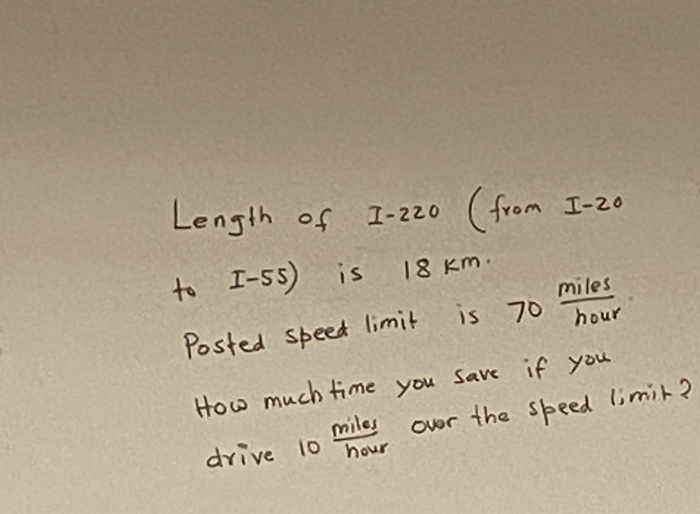 Length of I-220 (from I-20
to I-55) is 18 km.
Posted speed limit is 70 miles/hour.
How much time you save if you
drive 10 miles/hour over the speed limit?